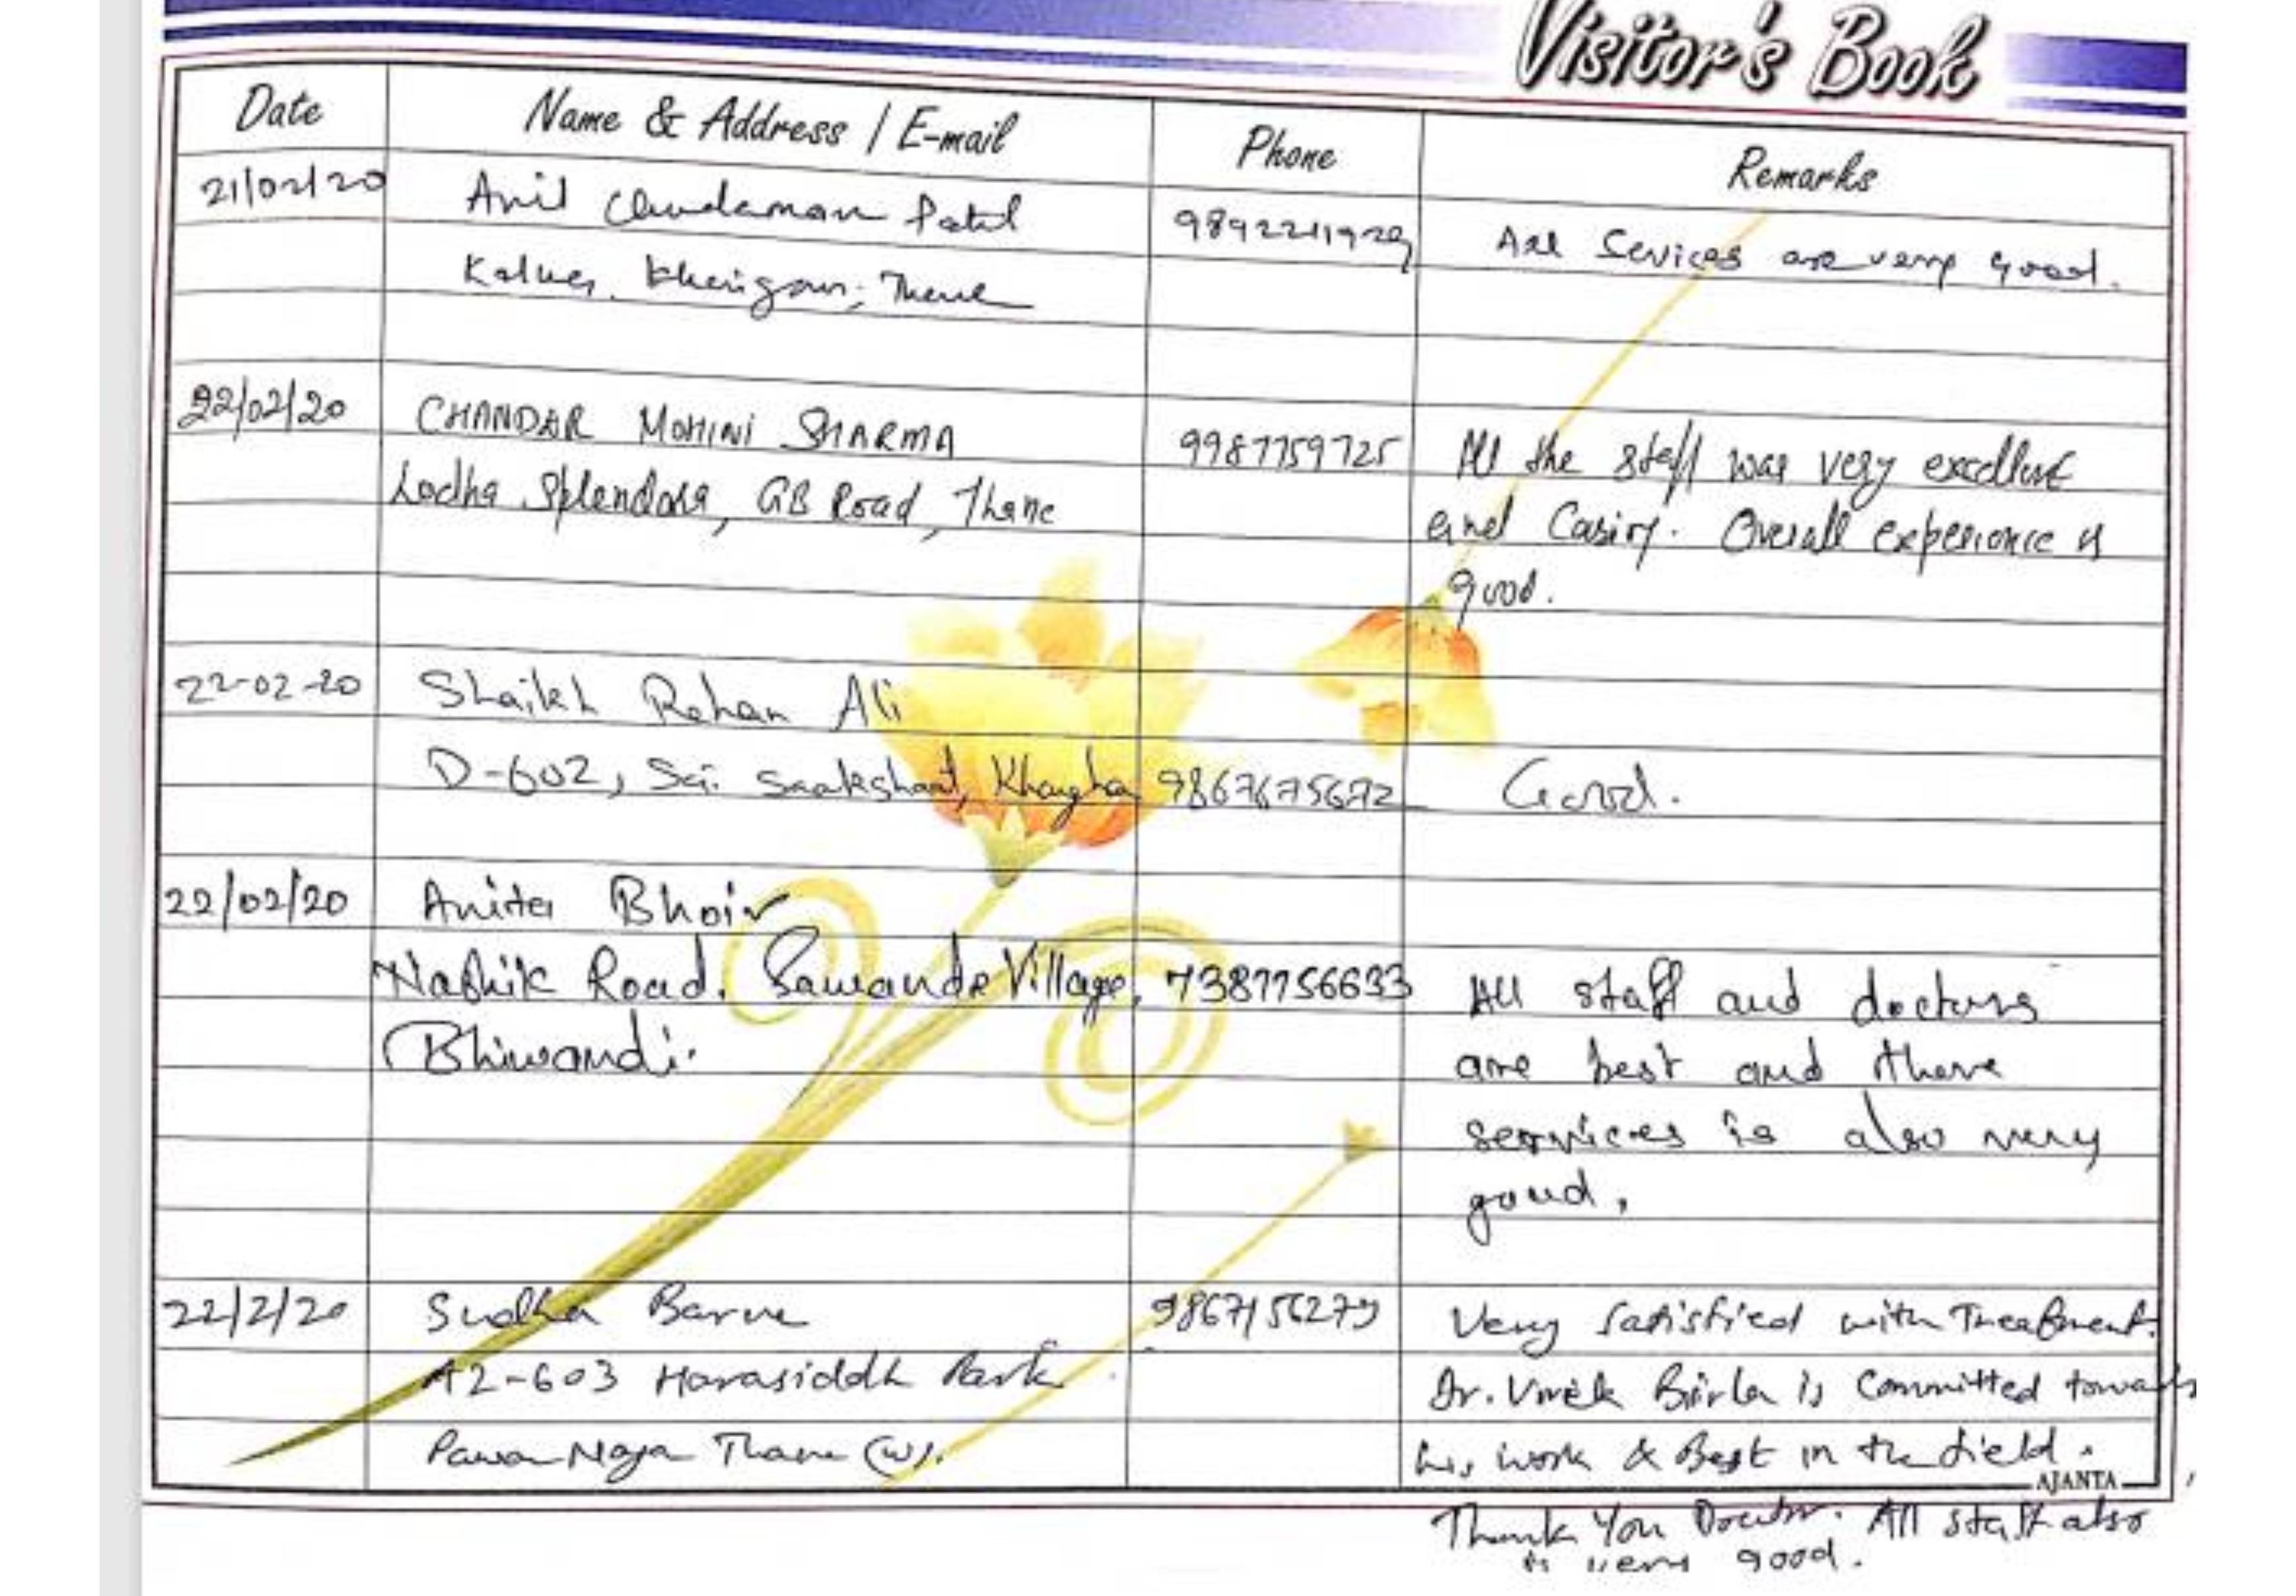 Visitor's Book
Date Name & Address / E-mail Phone Remarks
21/02/20 Anil Chudaman Patil
All Sevices are very good.
Kalwa, Kharigaon, Thane
22/02/20 CHANDAR MOHINI SHARMA 9987759725 All the staff was very excellent
Lodha Splendora, GB Road, Thane and Casiry. Overall experience is
good.
22-02-20 Shaikh Rehan Ali
D-602, Sai Saakshaat, Kharghar 9867675672 Good.
22/02/20 Anita Bhoir
Nashik Road, Sawande Village, 7387756633 All staff and doctors
Bhiwandi. are best and there
services is also very
good.
22/2/20 Sudha Barve 9867156279 Very satisfied with Treatment.
A2-603 Harasiddh Park Dr. Vivek Birla is Committed towards
Pawar Nagar Thane (W). his work & Best in the field.
AJANTA
Thank You Doctor. All staff also
is very good.